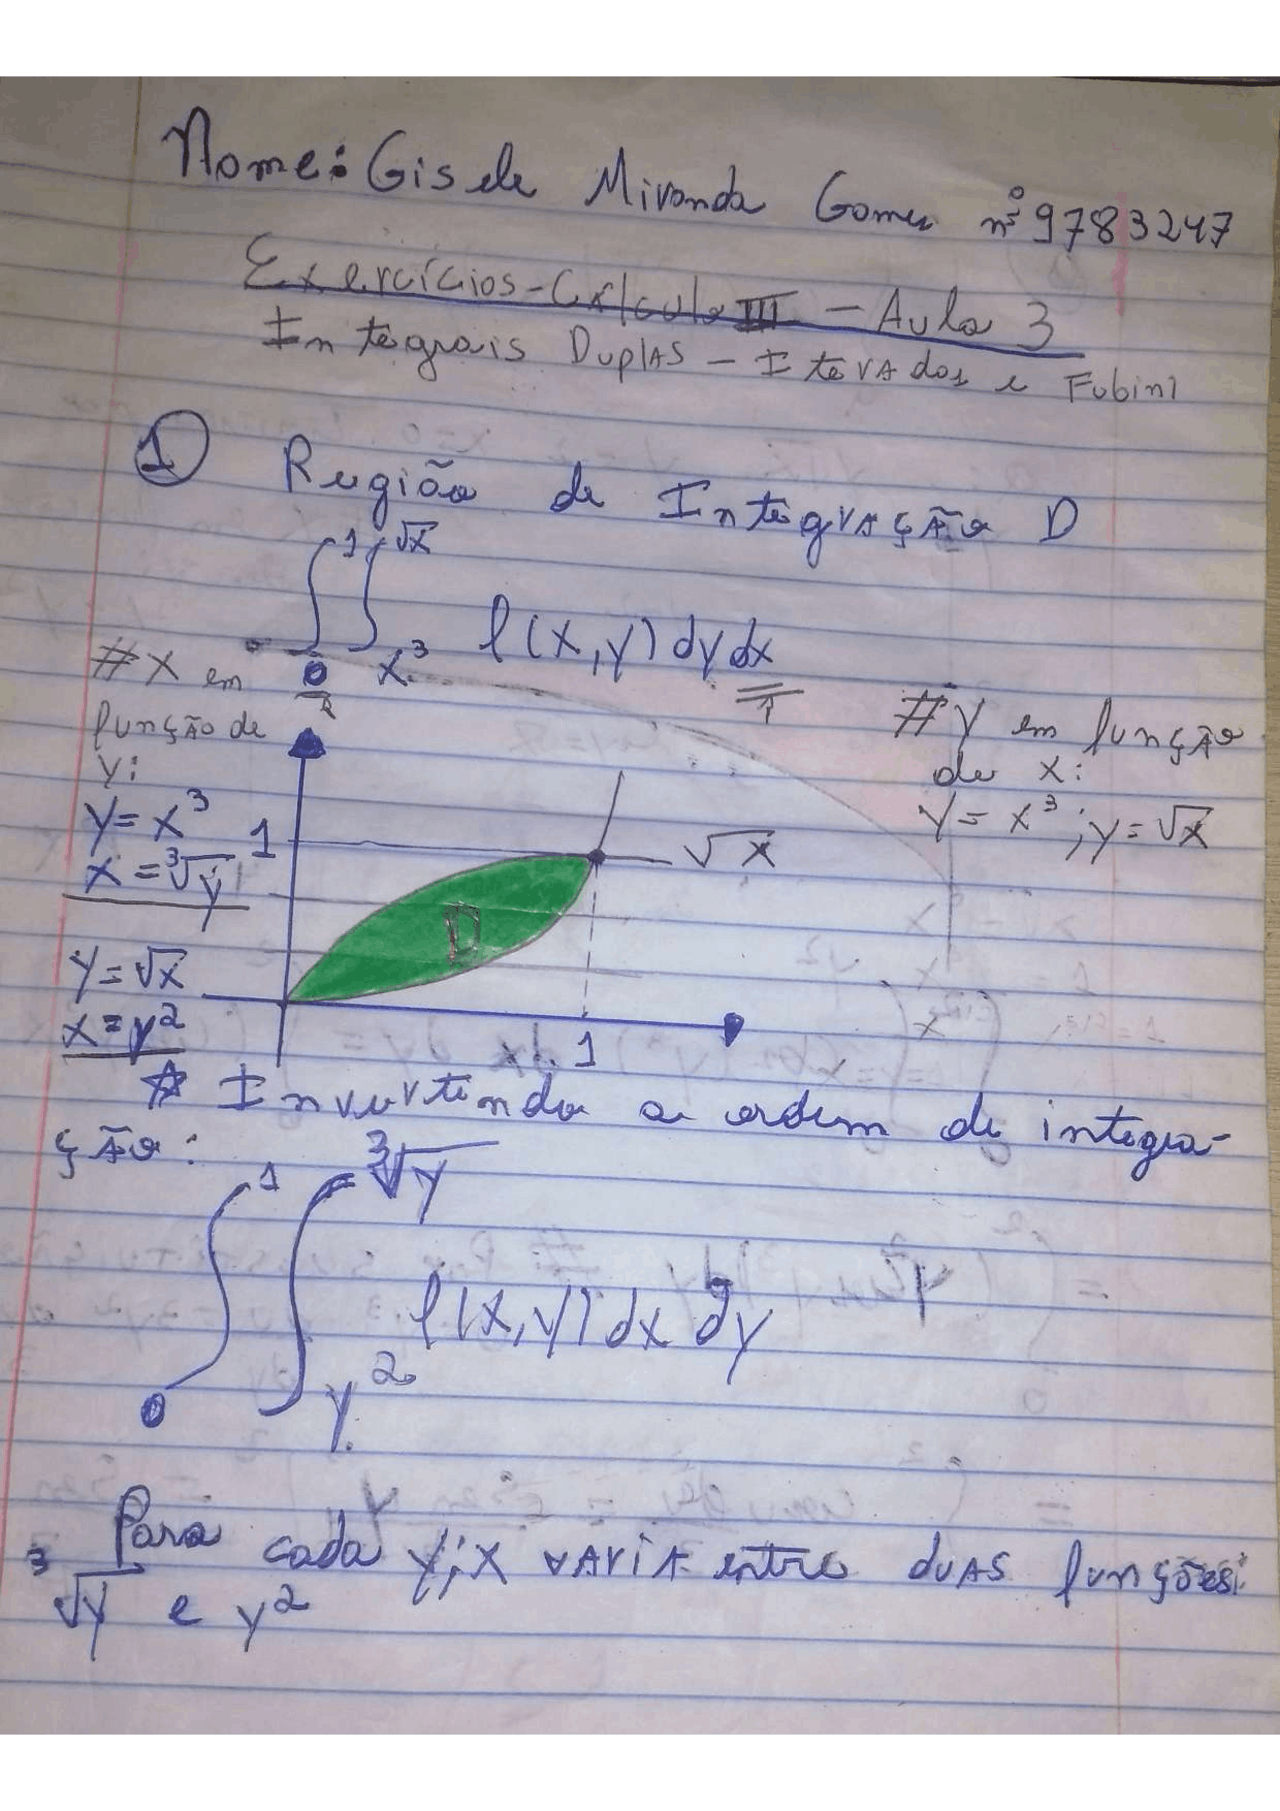 Nome: Gisele Miranda Gomes nº 9783247
Exercícios - Cálculo III - Aula 3
Integrais Duplas - Itevados e Fubini
① Região de Integração D
∫₀¹ ∫_{x³}^{√x} f(x,y) dy dx
# X em função de y:
y = x³
x = ∛y
y = √x
x = y²
# Y em função
de x:
y = x³ ; y = √x
1
√x
D
x 1
☆ Invertendo a ordem de integra-
ção:
∫₀¹ ∫_{y²}^{∛y} f(x,y) dx dy
Para cada y; x varia entre duas funções:
∛y e y²